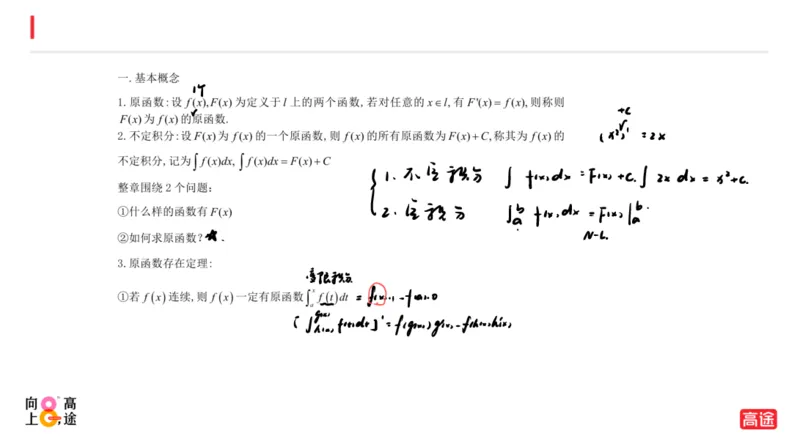 一.基本概念
1个
1.原函数:设f(x),F(x)为定义于l上的两个函数,若对任意的x∈l,有F'(x)=f(x),则称则
F(x)为f(x)的原函数.
+C
(x²)'=2x
2.不定积分:设F(x)为f(x)的一个原函数,则f(x)的所有原函数为F(x)+C,称其为f(x)的
不定积分,记为∫f(x)dx,∫f(x)dx=F(x)+C
1.不定积分 ∫f(x)dx=F(x)+C. ∫2x dx=x²+C.
整章围绕2个问题:
①什么样的函数有F(x)
2.定积分 ∫ₐᵇ f(x)dx=F(x)|ₐᵇ.
N-L.
②如何求原函数?★.
3.原函数存在定理:
变限积分
①若f(x)连续,则f(x)一定有原函数∫ₐˣ f(t)dt = f(x)·1-f(a)·0
[∫h(x)g(x) f(t)dt]'=f(g(x))g'(x)-f(h(x))h'(x)
向上 高途
高途